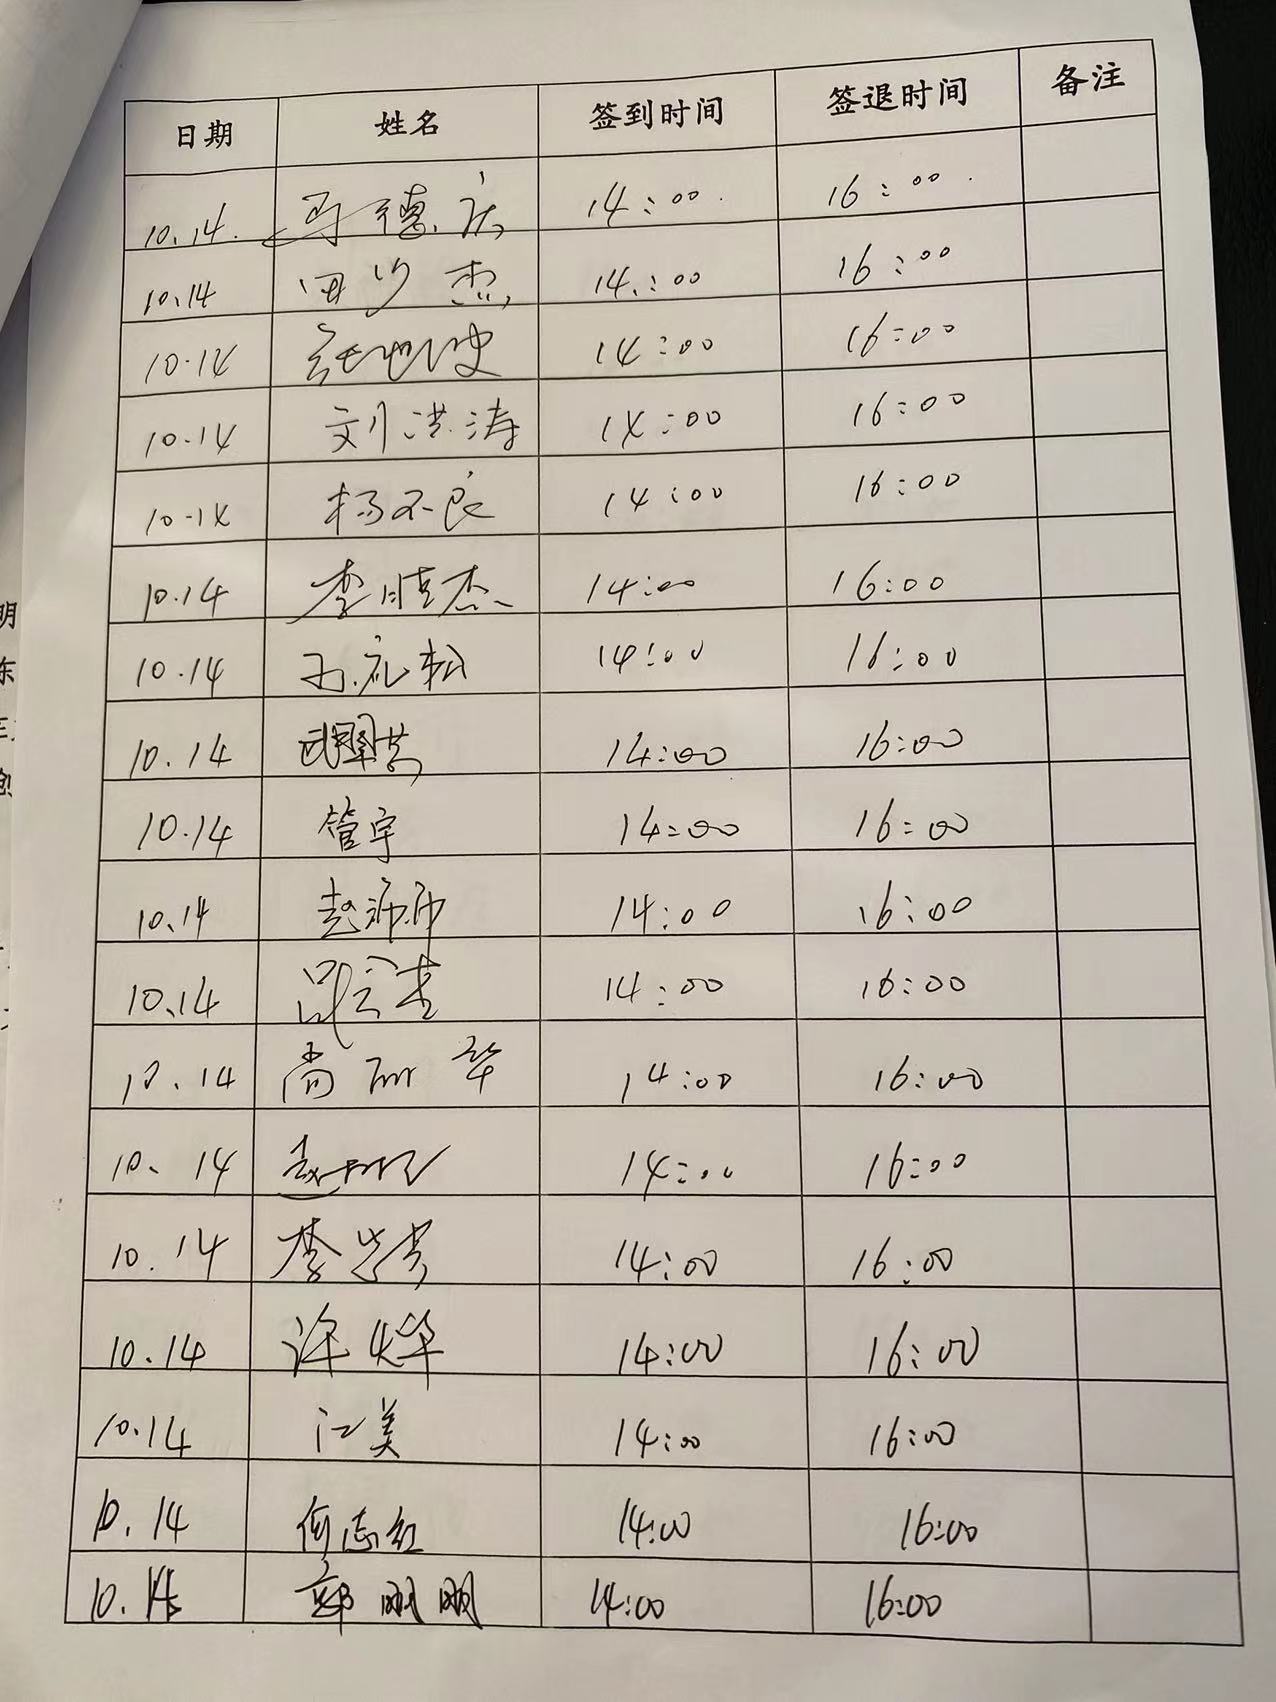 日期 姓名 签到时间 签退时间 备注
10.14. 马德庆 14:00. 16:00.
10.14 田少杰 14:00 16:00
10.14 14:00 16:00
10.14 刘洪涛 14:00 16:00
10.14 杨不良 14:00 16:00
10.14 李晓杰 14:00 16:00
10.14 孙礼松 14:00 16:00
10.14 14:00 16:00
10.14 管宇 14:00 16:00
10.14 赵沛沛 14:00 16:00
10.14 14:00 16:00
10.14 尚丽华 14:00 16:00
10.14 14:00 16:00
10.14 李 14:00 16:00
10.14 许烨 14:00 16:00
10.14 江美 14:00 16:00
10.14 何志红 14:00 16:00
10.14 郭明明 14:00 16:00
明
东